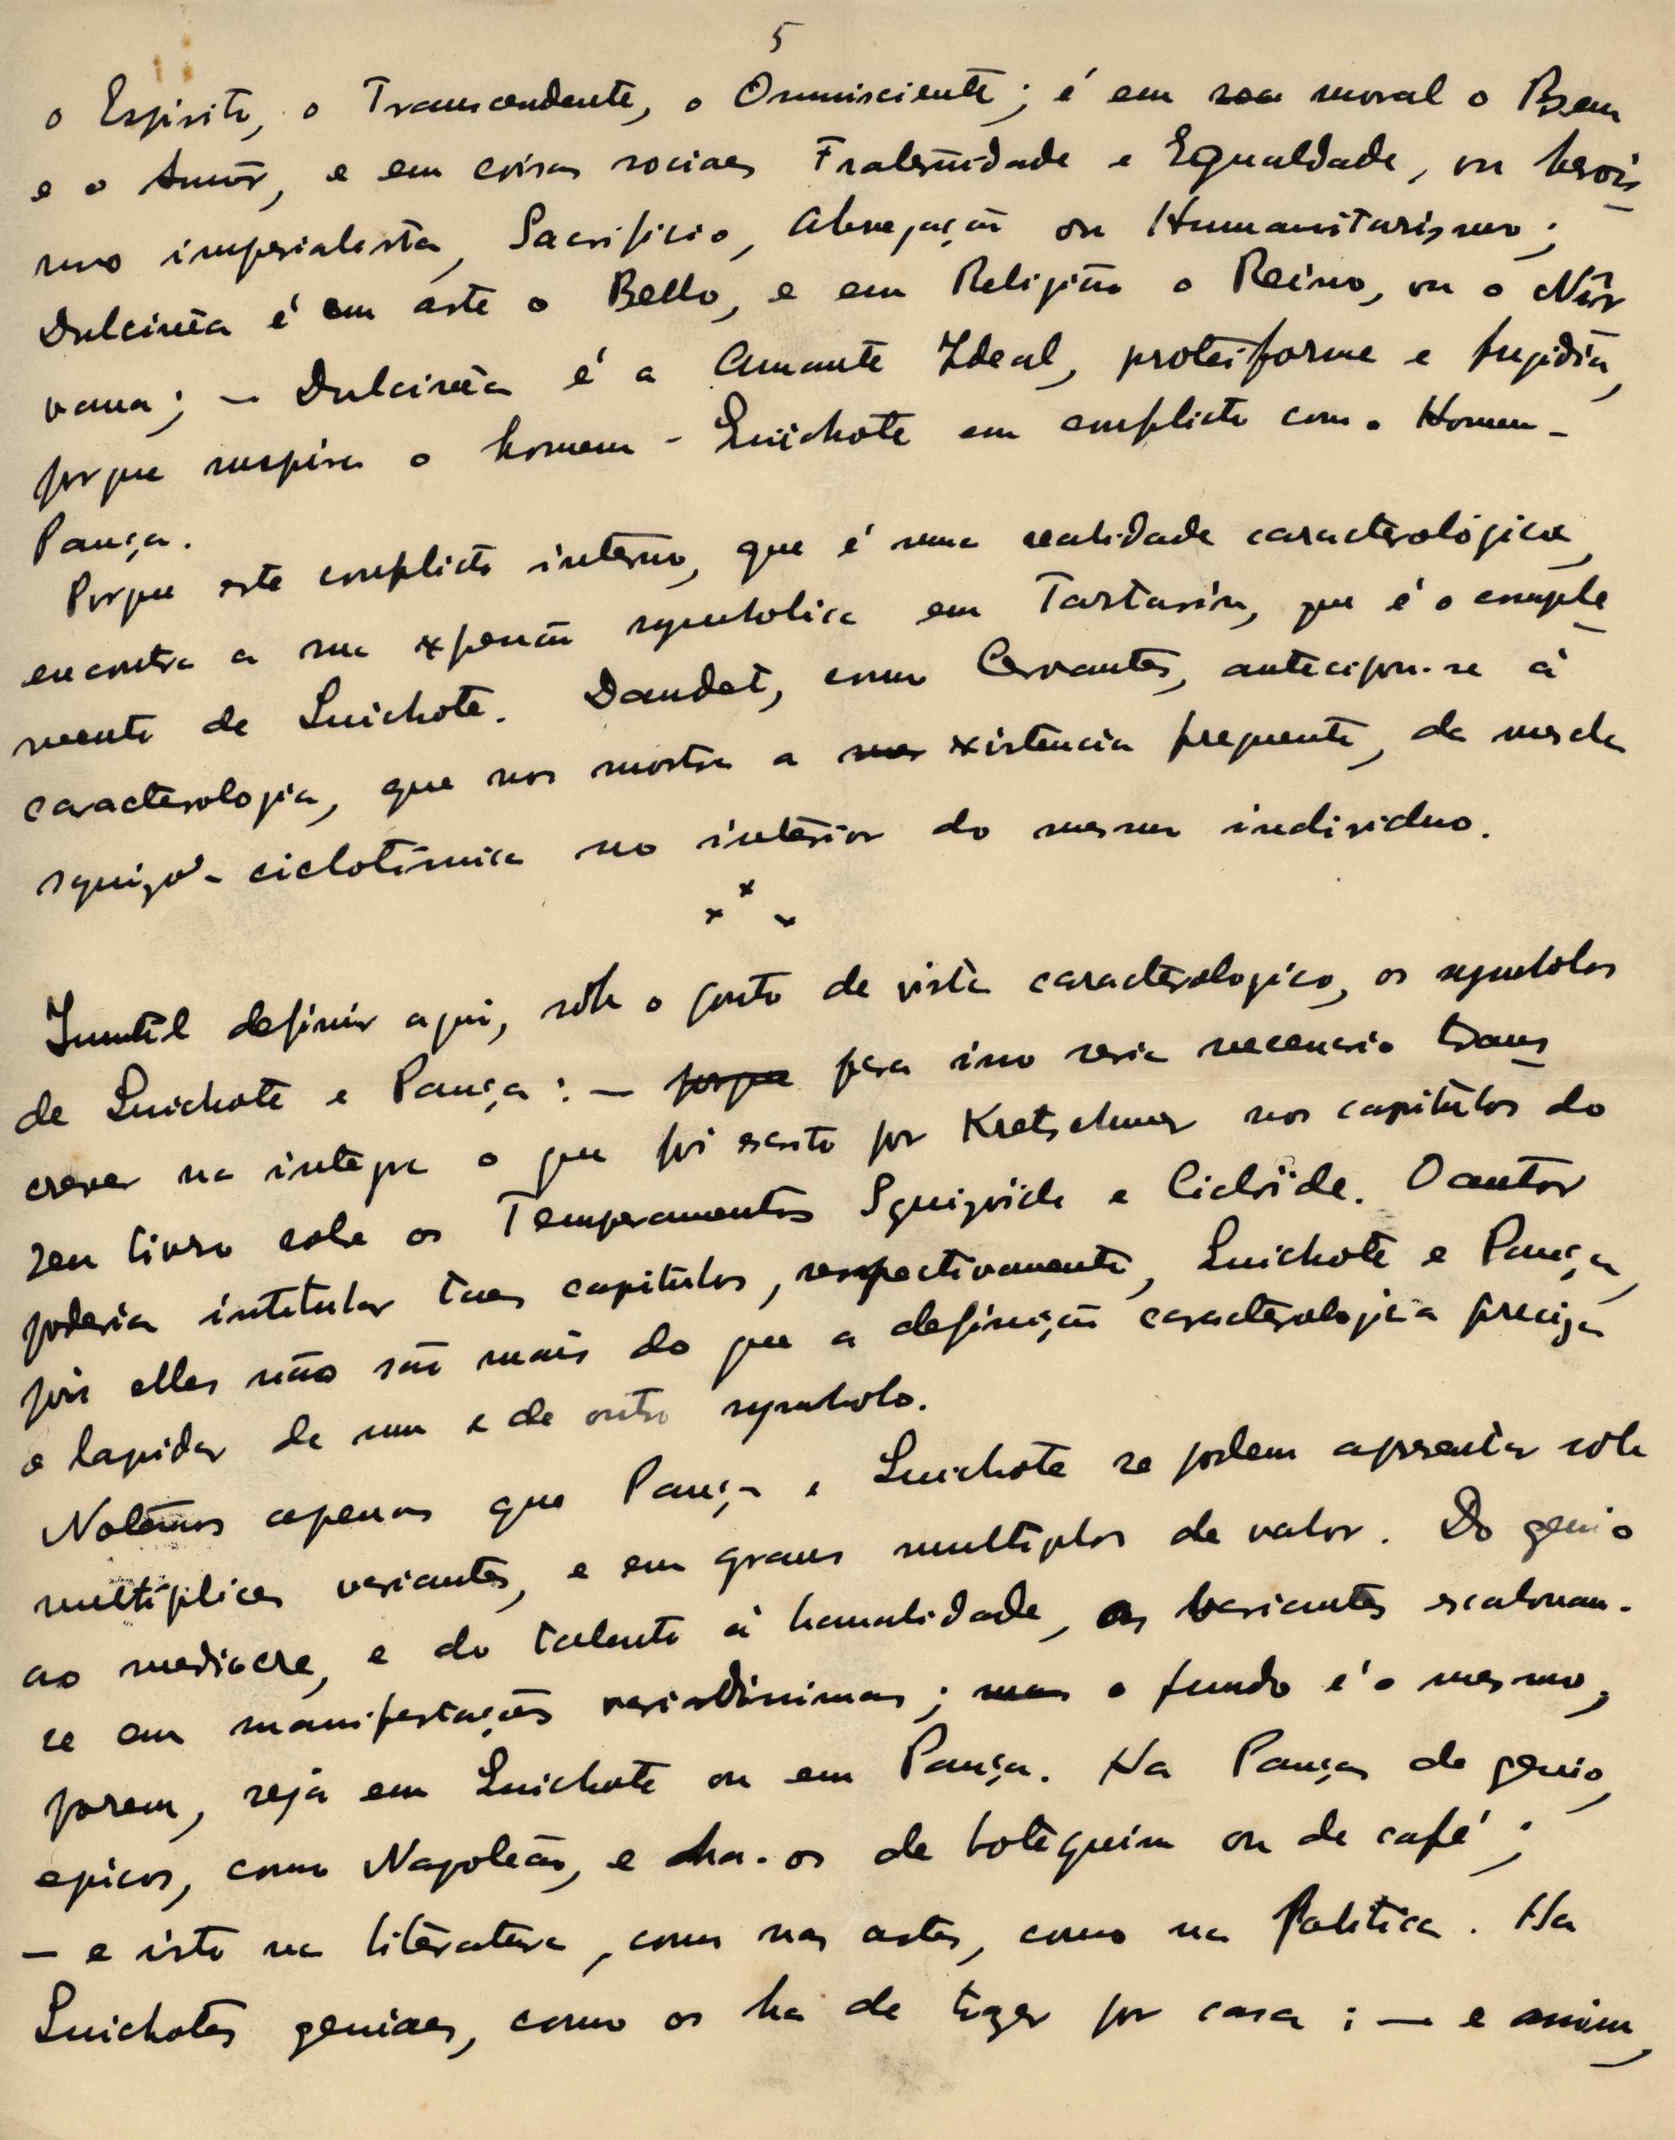 5
o Espirito, o Transcendente, o Omnisciente; é em moral o Bem
e o Amôr, e em coisas sociaes Fraternidade e Egualdade, ou herois
mo imperialista, Sacrificio, Abnegação ou Humanitarismo;
Dulcinêa é em arte o Bello, e em Religião o Reino, ou o Nir
vana; — Dulcinêa é a Amante Ideal, proteiforme e fugidia,
porque inspira o homem-Quichote em conflicto com o Homem-
Pança.
Porque este conflicto interno, que é uma realidade caracterológica,
encontra a sua expressão symbolica em Tartarin, que é o comple
mento de Quichote. Daudet, como Cervantes, antecipou-se á
caracterologia, que nos mostra a existencia frequente, da mescla
squizo-ciclotímica no interior do mesmo individuo.
Inutil definir aqui, sob o ponto de vista caracterologico, os symbolos
de Quichote e Pança: — porque para isso seria necessario trans
crever na integra o que foi escrito por Kretschmer nos capitulos do
seu livro sobre os Temperamentos Squizoïde e Cicloïde. O autor
poderia intitular taes capitulos, respectivamente, Quichote e Pança,
pois elles não são mais do que a definição caracterologica precisa
e lapidar de um e de outro symbolo.
Notêmos apenas que Pança e Quichote se podem apresentar sob
multiplices variantes, e em graus multiplos de valor. Do genio
ao mediocre, e do talento á banalidade, as variantes escalonam-
se em manifestações variadissimas; mas o fundo é o mesmo,
porem, seja em Quichote ou em Pança. Ha Panças de genio,
epicos, como Napoleão, e ha-os de botequim ou de café;
— e isto na literatura, como nas artes, como na Politica. Ha
Quichotes geniaes, como os ha de trazer por casa; — e assim,